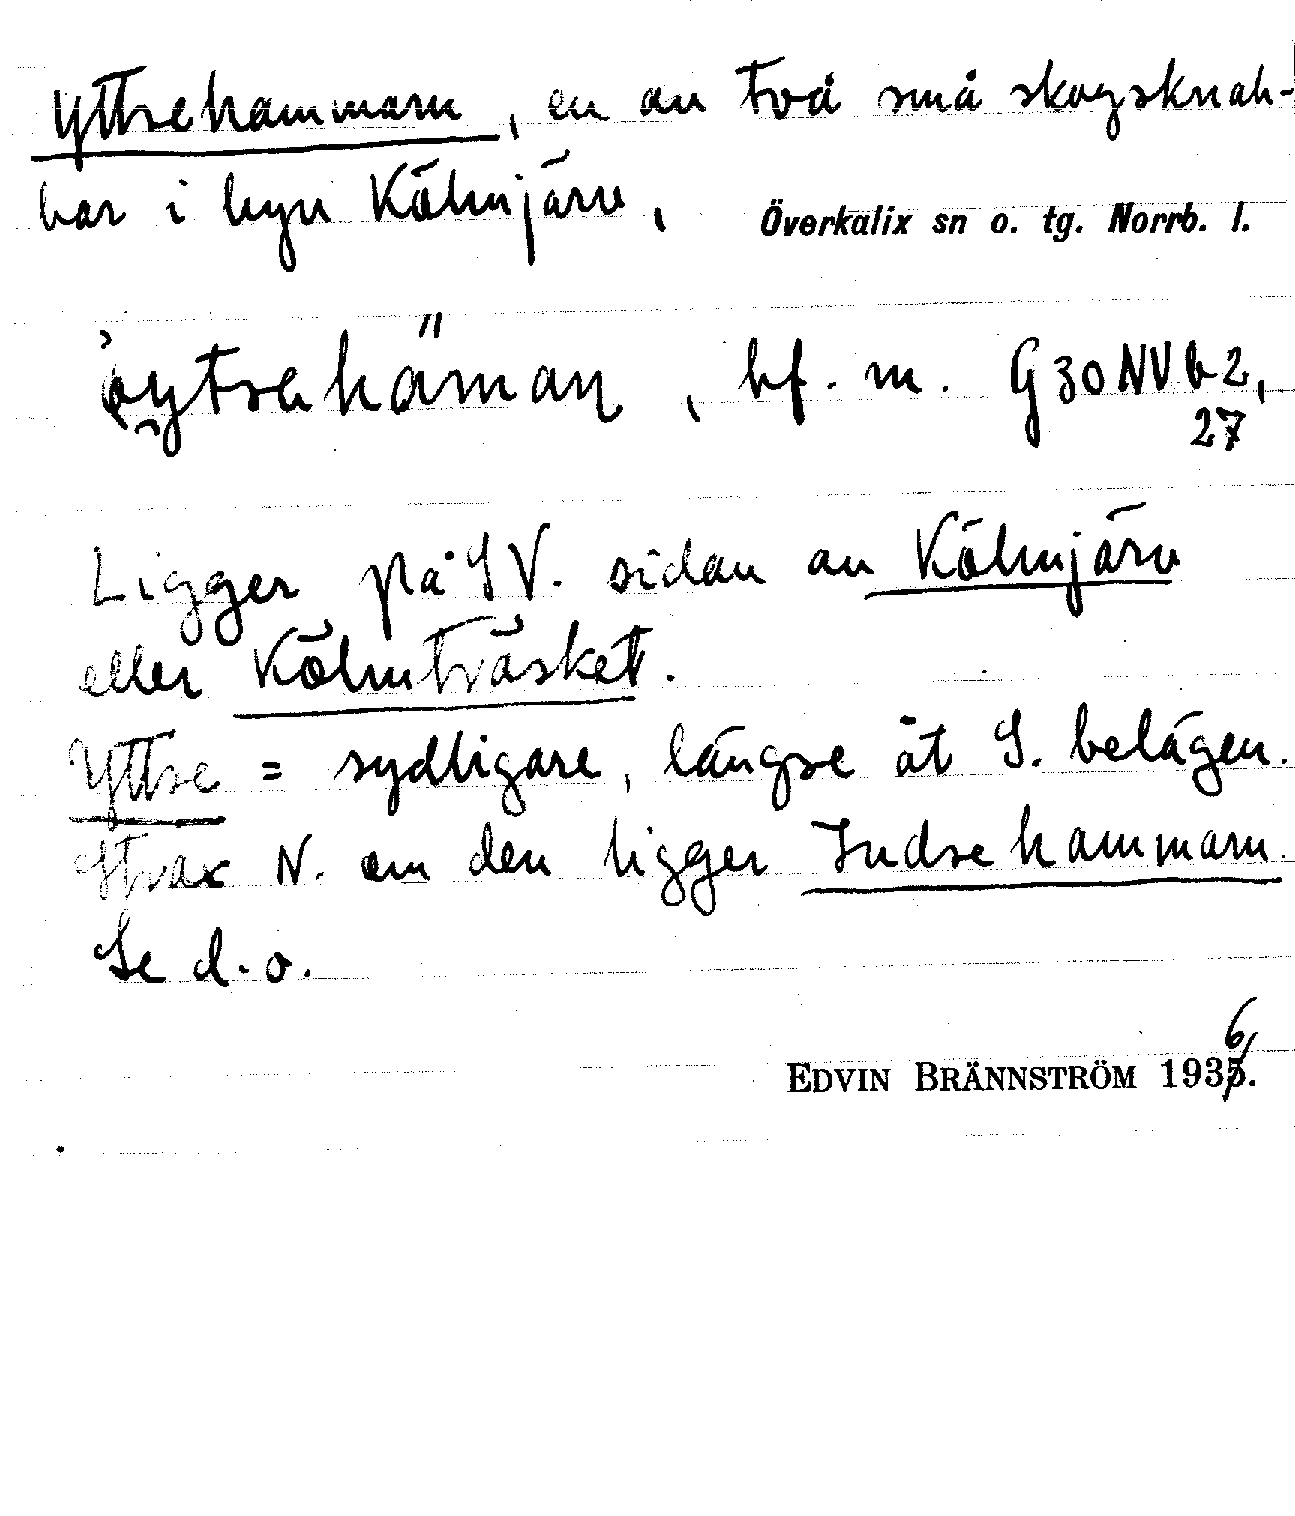 Yttrehammarn, en av två små skogsknab-
bar i byn Kölmjärv, Överkalix sn o. tg. Norrb. l.
bf. m. G30NVb2,
27
Ligger på SV. sidan av Kölmjärv
eller Kölmträsket.
Yttre = sydligare, längre åt S. belägen.
Strax N. om den ligger Indrehammarn.
Se d. o.
6
EDVIN BRÄNNSTRÖM 1935.